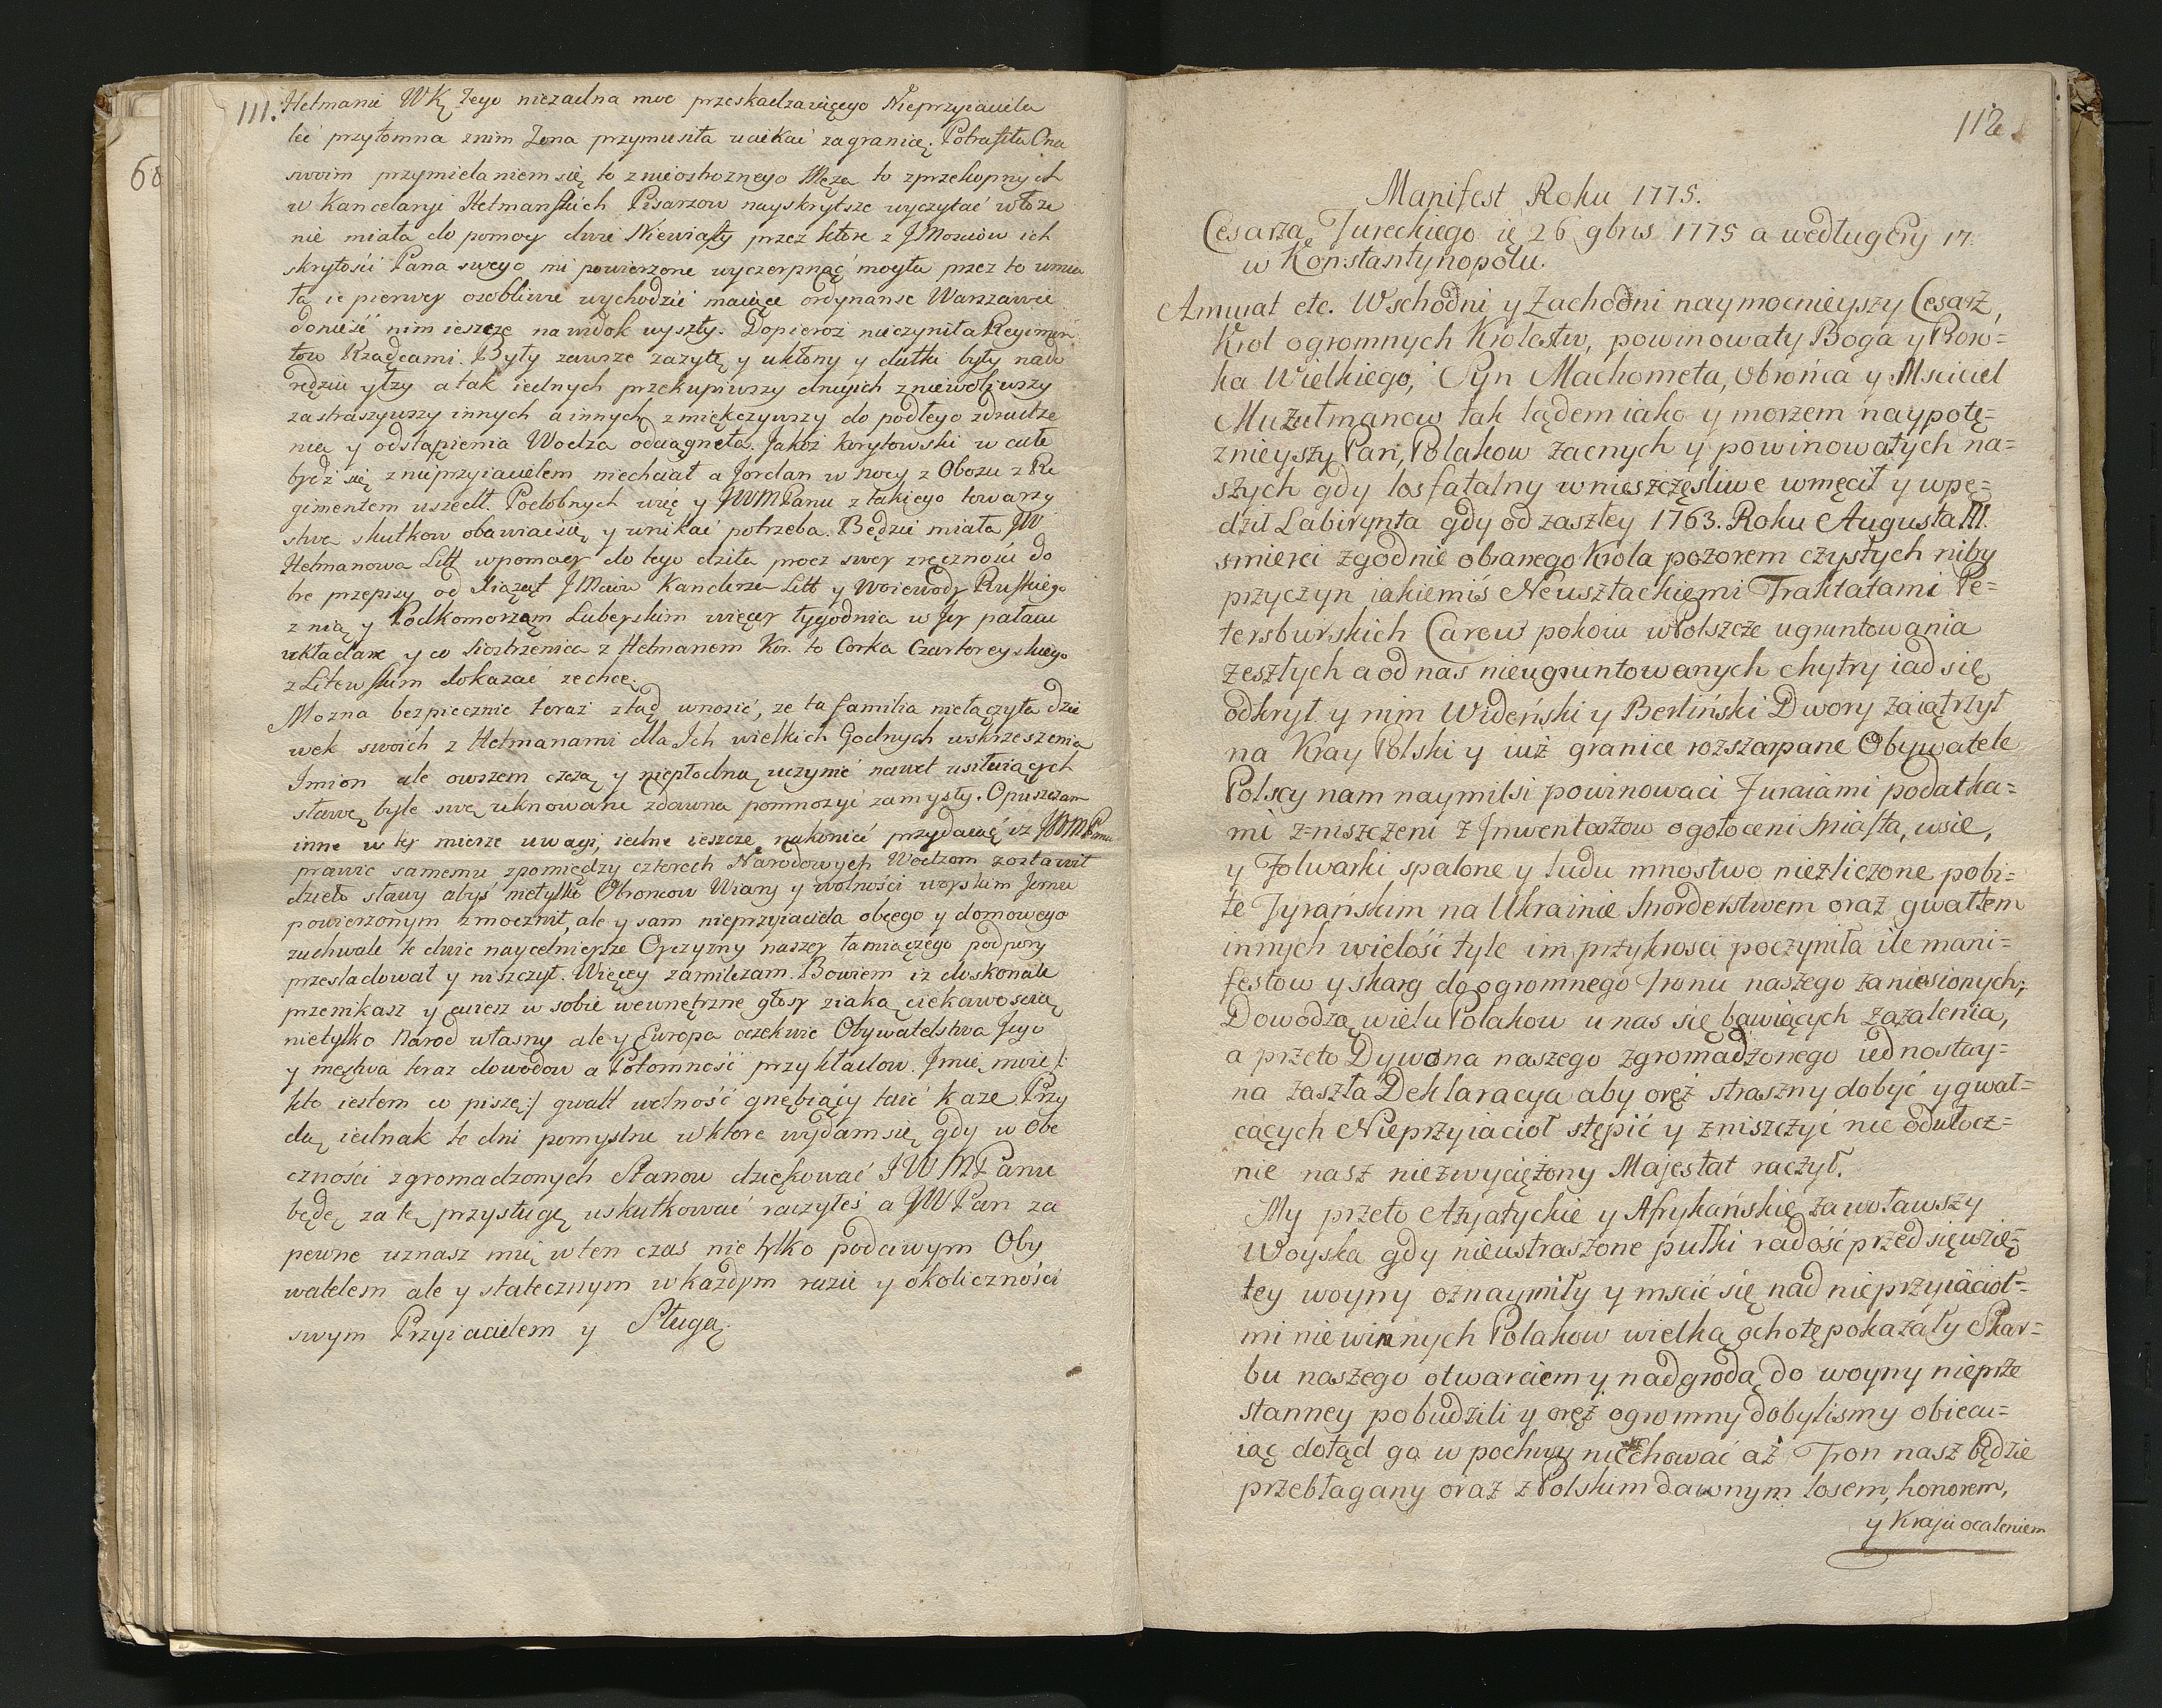 111.
Hetmanie WKę Jego nieżadna moc przeskadzaiącego Nieprzyiaciela
lec przytomna znim Żona przymusiła uciekać zagranicę. Potrafiła Ona
swoim przymilaniem się to znieostroznego Męża to zprzekupnych
w Kancelaryi Hetmanſkich Pisarzow nayskrytsze wyczytać wtoże
nie miała do pomocy dwie Niewiaſty przez ktore z JMosciow ich
skrytości Pana swego mi powierzone wyczerpnąć mogła przez to umia
ła ie pierwey osobliwie wychodzić maiące ordynanse Warszawie
donieść nim ieszcze na widok wyszły. Dopieroż uieczyniła Regimen
tow Rządcami. Były zawsze zażyte y ukłony y dutki były nad
rędziu y łzy a tak iednych przekupiwszy drugich zniewoliwszy
zastraszywszy innych a innych zmiękczywszy do podłego zdradze
nia y odstąpienia Wodza odciągneła. Jakoż korytowski w cale
bydź się z nieprzyiacielem niechciał a Jordan w nocy z Obozu z Re
gimentem uszedł. Podobnych więc y JWMPanu z takiego towarzy
stwa skutkow obawiać się y unikać potrzeba. Będzie miała JW
Hetmanowa Litt wpomocy do tego dzieła procz swey zręczności do
bre przepisy od Xiąząt JMciow Kanclerza Litt y Woiewody Ruſkiego
z nią y Podkomorzym Luberskim więcey tygodnia w Jey pałacu
układane y co Siostrzenica z Hetmanem Kor. to Corka Czartoreyskiego
z Litewſkim dokazać zechce.
Mozna bezpiecznie teraz ztąd wnosić, że ta familia niełączyła dzie
wek swoich z Hetmanami dla Ich wielkich Godnych wskrzeszenia
Imion ale owszem czczą y niepłodną uczynić nawet usiłuiących
sławę byle swe uknowane zdawna pomnożyć zamysły. Opuszczam
inne w tey mierze uwagi, iedne ieszcze nakoniec przydaiąc iż JWMPanu
prawie samemu zpomiędzy czterech Narodowych Wodzom zostawił
dzieło sławy abyś nietylko Obroncow Wiary y wolności woyskiem Jemu
powierzonym zmocznił, ale y sam nieprzyiaciela obcego y domowego
zuchwale te dwie naycelnieysze Oyczyzny naszey łamiączego podpory
prześladował y niszczył. Więcey zamilczam. Bowiem iż doskonale
przenikasz y czuiesz w sobie wewnętrzne głosy ziaką ciekawoscią
nietylko Narod własny ale y Europa oczekuie Obywatelstwa Jego
y męstwa teraz dowodow a Potomność przykładow. Jmie moie /:
kto iestem co piszę :/ gwałt wolność gnębiący taić każe. Przy
dą iednak te dni pomyslne wktore wydam się gdy w Obe
czności zgromadzonych Stanow dziękować JWMPanu
będę za tę przysługę uskutkować raczyłeś a JWPan za
pewne uznasz mię w ten czas nie tylko podciwym Oby
watelem ale y statecznym w każdym razie y okoliczności
swym Przyiacielem y Sługą.
112.
Manifest Roku 1775.
Cesarza Tureckiego ie 26 gbris 1775 a według Ery 17.
w Konstantynopolu.
Amurat etc. Wschodni y Zachodni naymocnieyszy Cesarz,
Krol ogromnych Krolestw, powinowaty Boga y Proro=
ka Wielkiego, Syn Machometa, Obrońca y Msciciel
Muzułmanow tak lądem iako y morzem naypotę=
znieyszy Pan, Polakow zacnych y powinowatych na=
szych gdy los fatalny w nieszczęsliwe wmęcił y wpę=
dził Labirynta gdy od zaszłey 1763. Roku Augusta III.
smierci zgodnie obranego Krola pozorem czystych niby
przyczyn iakiemiś Neusztackiemi Traktatami Pe=
tersburskich Carow pokoiu w Polszcze ugruntowania
zeszłych a od nas nieugruntowanych chytry iad się
odkrył y nim Wideński y Berliński Dwory zaiątrzył
na Kray Polski y iuż granice rozszarpane Obywatele
Polscy nam naymilsi powinowaci Furaiami podatka=
mi zniszczeni z Jnwentarzow ogołoceni Miaſta, wsie,
y Folwarki spalone y ludu mnostwo niezliczone pobi=
te Tyrańskim na Ukrainie Morderstwem oraz gwałtem
innych wielość tyle im przykrosci poczyniła ile mani=
festow y skarg do ogromnego Tronu naszego zaniesionych;
Dowodzą wielu Polakow u nas się bawiących zażalenia,
a przeto Dywana naszego zgromadzonego iednostay=
na zaszła Deklaracya aby oręż straszny dobyć y gwał=
cących Nieprzyiacioł stępić y zniszczyć nie odwłocz=
nie nasz niezwyciężony Majestat raczył.
My przeto Azyatyckie y Afrykańskie zawoławszy
Woyska gdy nieustraszone pułki radość przedsięwzię=
tey woyny oznaymiły y mscić się nad nieprzyiacioł=
mi niewinnych Polakow wielką ochotę pokazały Skar=
bu naszego otwarciem y nadgrodą do woyny nieprze
stanney pobudzili y oręż ogromny dobylismy obiecu=
iąc dotąd go w pochwy nie chować aż Tron nasz będzie
przebłagany oraz z Polskim dawnym losem, honorem,
y Kraju ocaleniem